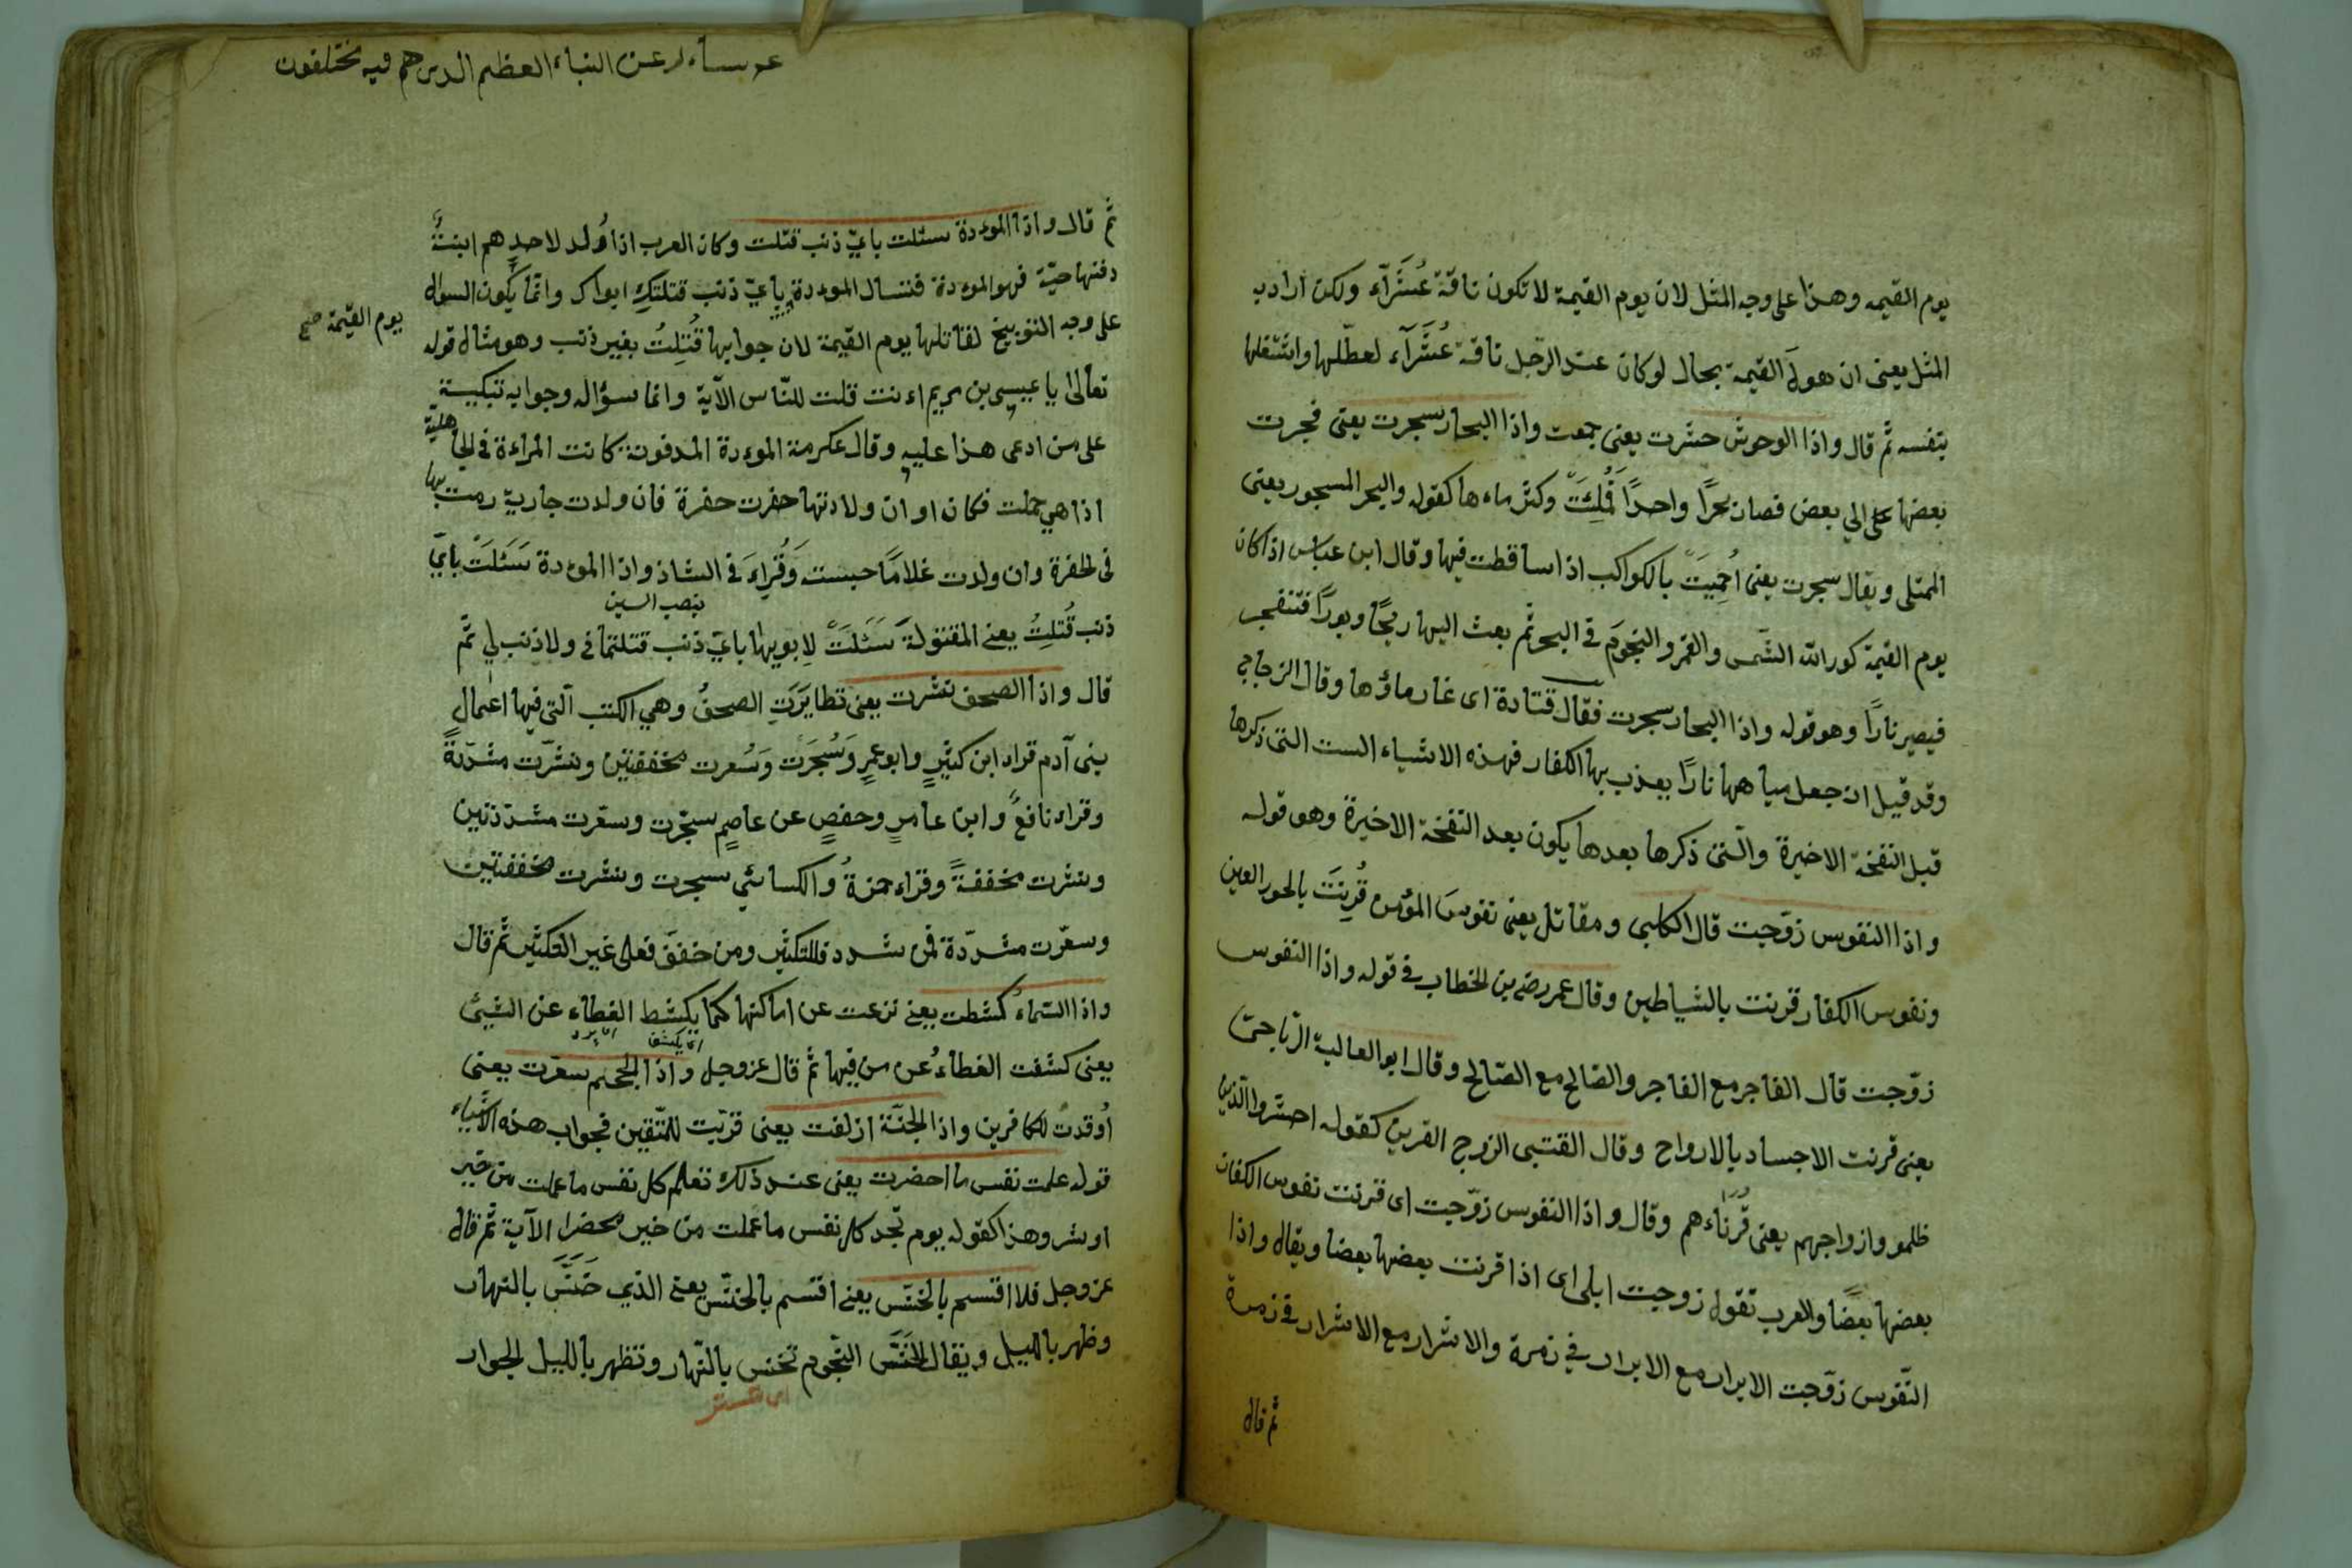 يوم القيمه وهذا على وجه المثل لان يوم القيمة لا تكون ناقة عُشَرَآء ولكن اراد به
المثل يعنى ان هولَ القيمة بحال لو كان عند الرّجل ناقة عُشَرَآء لعطّلها واشتغلها
بنفسه ثم قال واذا الوحوش حشرت يعنى جمعت واذا البحار سجرت يعنى فجرت
بعضها على الي بعض فصار بحرًا واحدًا مُلِئَتْ وكثر ماءها كقوله والبحر المسجور يعنى
الممتلى ويقال سجرت يعنى اُحْمِيَتْ بالكواكب اذا تساقطت فيها وقال ابن عباس اذا كان
يوم القيمة كور الله الشّمس والقمر والنجومَ في البحر ثم بعث اليها ريحًا دبورًا فتنفجر
فيصير نارًا وهو قوله واذا البحار سجرت فقال قتادة اى غار ماؤها وقال الزجاجي
وقد قيل ان جعل مياهها نارًا يعذب بها الكفار فهذه الاشياء الست التى ذكرها
قبل النفخة الاخيرة والّتى ذكرها بعدها يكون بعد النفخة الاخيرة وهو قوله
واذا النفوس زوّجت قال الكلبى ومقاتل يعنى نفوسَ المؤمن قُرِنَتَ بالحور العين
ونفوس الكفار قرنت بالشياطين وقال عمر رضى بن الخطاب في قوله واذا النفوس
زوّجت قال الفاجر مع الفاجر والصّالح مع الصّالح وقال ابو العالية الرّياحىّ
يعنى قرنت الاجساد بالارواح وقال القتبى الزوج القرين كقوله احشروا الّذين
ظلمو وازواجهم يعنى قُرَنَاءهم وقال واذا النفوس زوّجت اى قرنت نفوس الكفار
بعضها بعضًا والعرب تقول زوجت ابلى اى اذا قرنت بعضها بعضا ويقال واذا
النّفوس زوّجت الابرار مع الابرار في زمرة والاشرار مع الاشرار في زمرة
ثم قال
عم يتساءلون عن النباء العظيم الذى هم فيه مختلفون
ثم قال واذا الموءدة سئلت بايّ ذنب قتلت وكان العرب اذا وُلد لاحدهم ابنةٌ
دفنها حيّة فهو الموءدة فتسال الموءدة بِايّ ذنب قتلتكِ ابواك وانّما يكون السوال
على وجه التوبيخ لقاتلها يوم القيمة لان جوابها قُتِلتُ بغير ذنب وهو مثال قوله
يوم القيمة صح
تعالى يا عيسى بن مريم اءنت قلت للنّاس الآية وانما سؤاله وجوابه تبكية
على من ادعى هذا عليه وقال عكرمة الموءدة المدفونة كانت المراءة في الجاهلية
اذا هي حملت فكان اوان ولادتها حفرت حفرة فان ولدت جارية رمت بها
فى الحفرة وان ولدت غلامًا حبسته وَقُرِاءَ فى الشاذ واذا الموءدة سَئَلَتْ بايّ
بنصب السين
ذنب قُتلتِ يعنى المقتولة سَئَلَتْ لِابويها بايّ ذنب قتلتما في ولا ذنب لي ثمّ
قال واذا الصحف نشرت يعنى تطايَرَتِ الصحفُ وهي الكتب الّتى فيها اعمال
بنى آدم قراء ابن كثيرٍ وابو عمرٍ وَسُجِرَت وَسُعرت مخففتين ونشّرت مشدّدةً
وقراء نافعٌ وابن عامرٍ وحفصٍ عن عاصمٍ سجّرت وسعّرت مشدّدتين
ونشرت مخففةً وقراء حمزةُ والكسائي سجرت ونشرت مخففتين
وسعّرت مشدّدة فمن شدد فللتكثير ومن خفف فعلى غير التكثير ثم قال
واذا السّماءُ كشطت يعنى نزعت عن اماكنها كما يكشط الغطاء عن الشيئ
اى يكشف
يعنى كشفت الغطاءُ عن من فيها ثم قال عز وجل واذا الجحيم سعّرت يعنى
اُوقدتْ للكافرين واذا الجنّة ازلفت يعنى قرّبت للمتّقين فجواب هذه الاشياء
قوله علمت نفس ما احضرت يعنى عند ذلك تعلم كل نفس ما عملت من خير
او شر وهذا كقوله يوم تجد كل نفس ما عملت من خير محضرا الآية ثم قال
عز وجل فلا اقسم بالخنّس يعنى اقسم بالخنّس يعنى الذي خَنَسَ بالنهار
وظهر بالليل ويقال الخنّس النّجوم تخنس بالنّهار وتظهر بالليل الجوار
اى تستتر